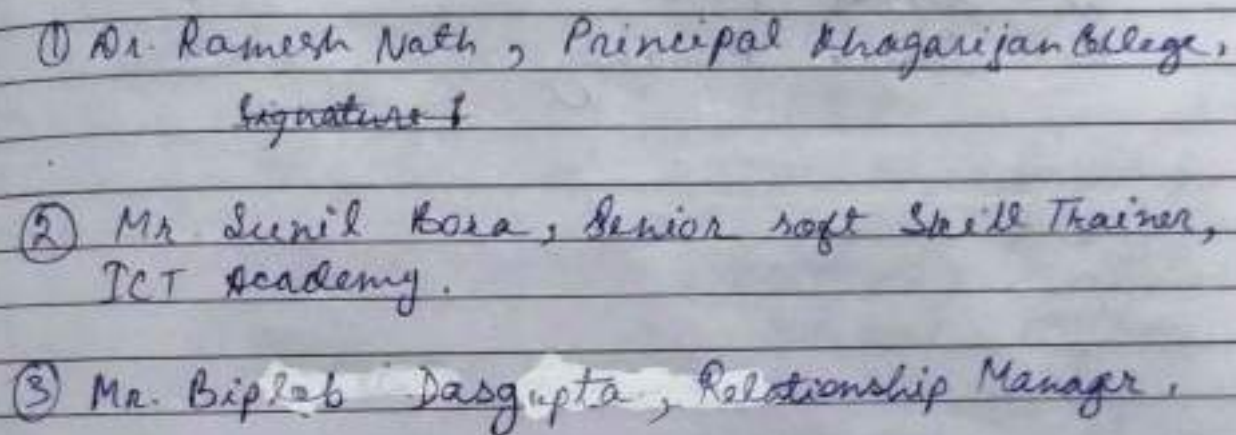 ① Dr. Ramesh Nath, Principal Khagarijan College,
Signature
② Mr Sunil Bora, Senior soft Skill Trainer,
ICT Academy.
③ Mr. Biplab Dasgupta, Relationship Manager,